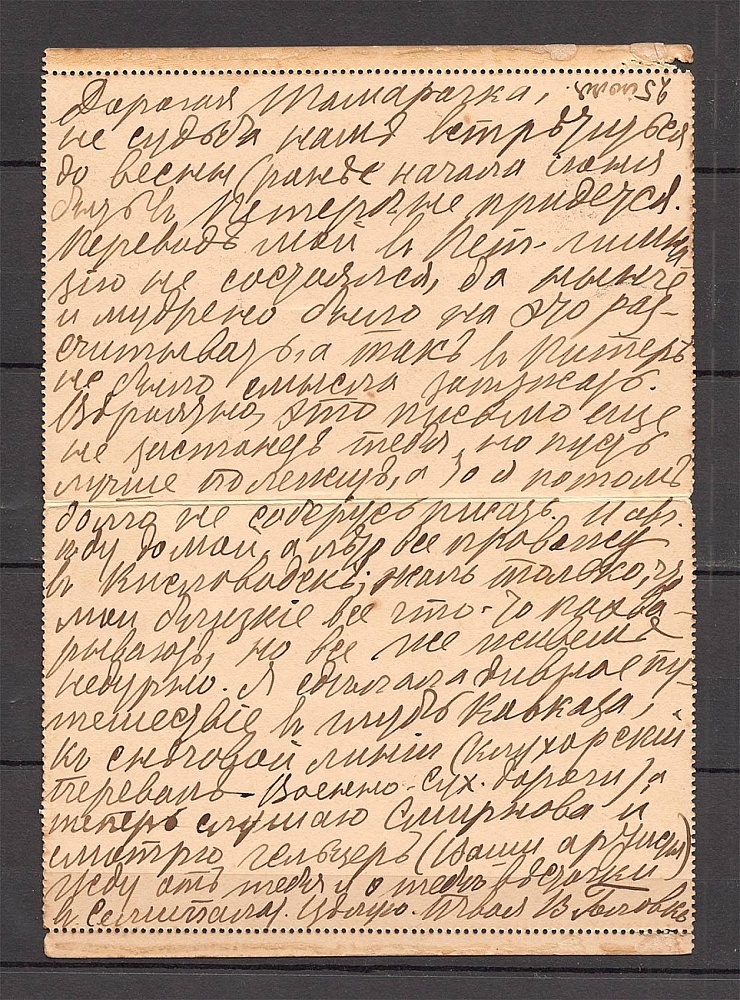 25 июля.
Дорогая Тамарочка,
не судьба намъ встрѣтиться
до весны (ранѣе начала июня
быть въ Петерб. не придется.
Переводъ мой въ Пет. гимна-
зию не состоялся, да нынче
и мудрено было на это рас-
считывать, а такъ въ Питеръ
не было смысла заѣзжать.
Вѣроятно, это письмо еще
не застанетъ тебя, но пусть
лучше полежитъ, а то я потомъ
долго не соберусь писать.
ѣду домой, а лѣто все провожу
въ Кисловодскѣ; жаль только, что
мои близкіе все что-то прихва-
рываютъ, но все же живемъ
недурно. Я сделала дивное пу-
тешествіе въ глубь Кавказа,
къ снѣговой линіи (Клухорскій
перевалъ Военно-Сух. дороги), а
теперь слушаю Смирнова и
смотрю Гельцеръ (Ваши артисты)
Жду отъ тебя и о тебѣ вѣсточки
Цѣлую. Твоя В. Головк